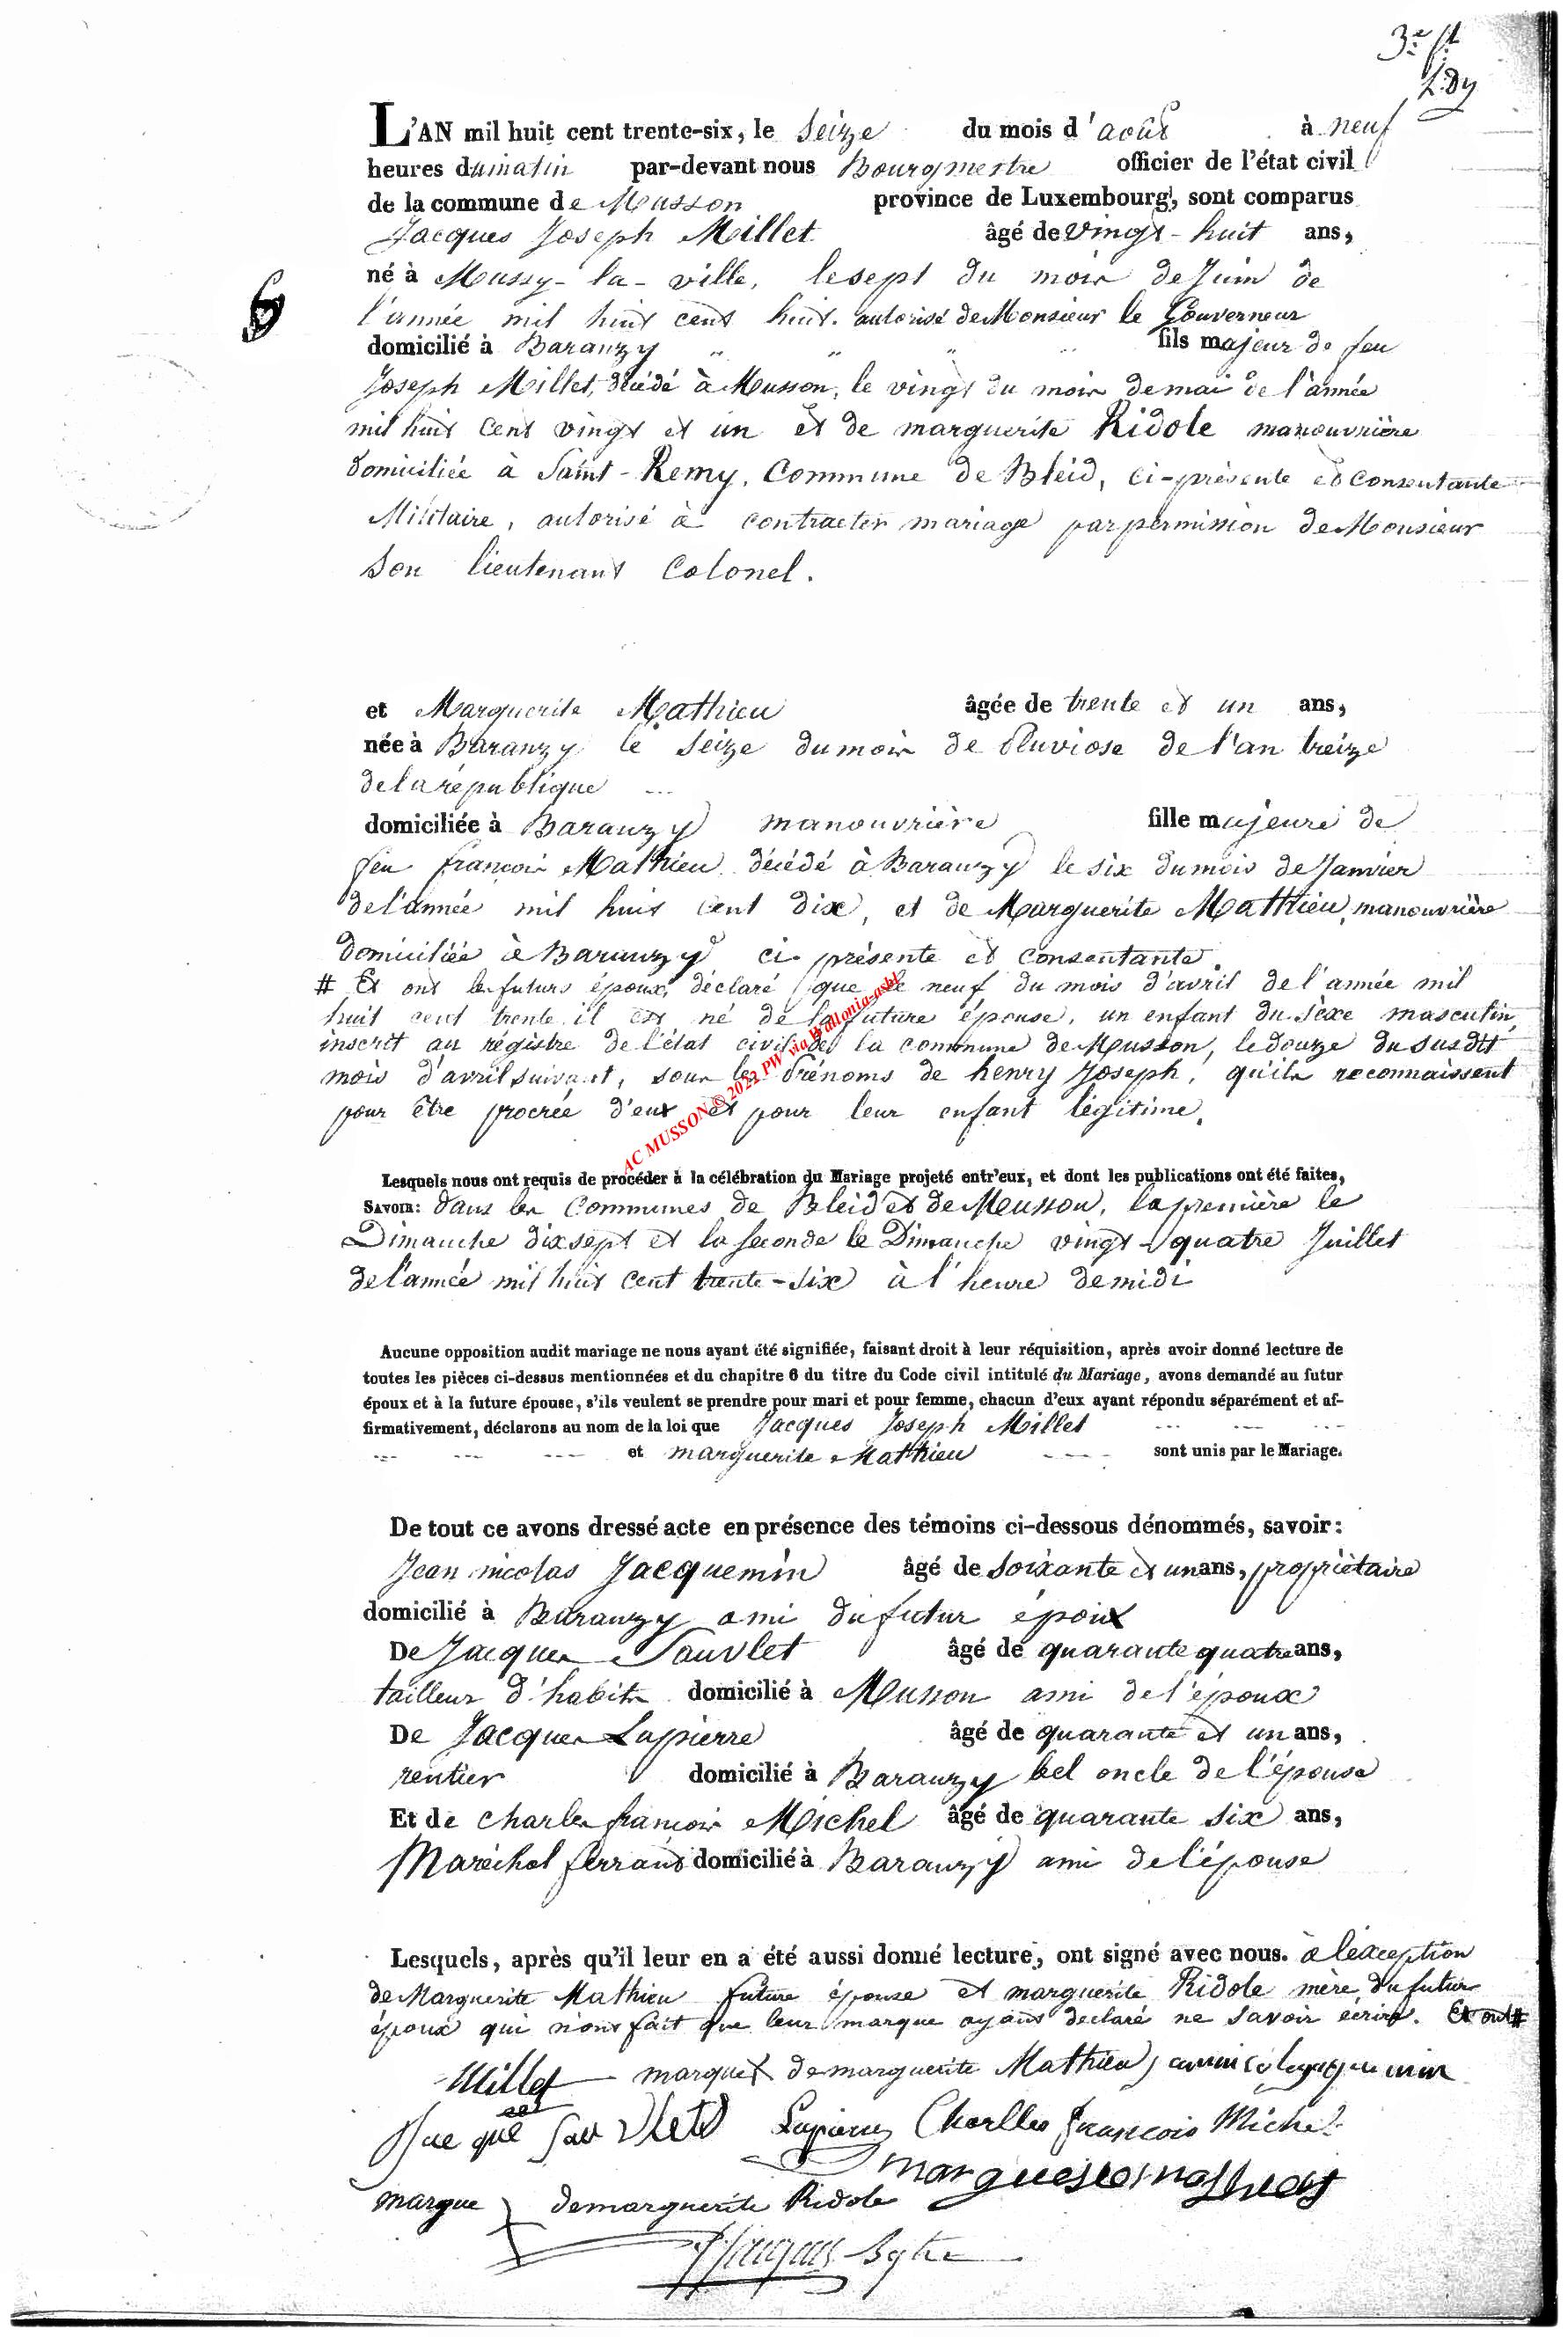 3e ft
L'AN mil huit cent trente-six, le Seize du mois d'août à neuf
heures du matin par-devant nous Bourgmestre officier de l'état civil
de la commune de Musson province de Luxembourg, sont comparus
Jacques Joseph Millet âgé de vingt-huit ans,
né à Mussy-la-ville, le sept du mois de Juin de
6
l'année mil huit cent huit. autorisé de Monsieur le Gouverneur
domicilié à Baranzy " " " " fils majeur de feu
Joseph Millet, décédé à Musson, le vingt du mois de mai de l'année
mil huit cent vingt et un et de marguerite Ridole manouvrière
domiciliée à Saint-Remy, Commune de Bleid, ci-présente et consentante
Militaire, autorisé à contracter mariage par permission de Monsieur
son lieutenant Colonel.
et Marguerite Mathieu âgée de trente et un ans,
née à Baranzy le seize du mois de Pluviose de l'an treize
de la république ---
domiciliée à Baranzy manouvrière fille majeure de
feu françois Mathieu décédé à Baranzy le six du mois de Janvier
de l'année mil huit cent dix, et de Marguerite Matthieu, manouvrière
domiciliée à Baranzy ci-présente et consentante.
# Et ont les futurs époux, déclaré que le neuf du mois d'avril de l'année mil
huit cent trente il est né de la future épouse, un enfant du sèxe masculin,
inscrit au régistre de l'état civil de la commune de Musson, le douze du susdit
mois d'avril suivant, sous les Prénoms de henry Joseph, qu'ils reconnaissent
pour être procréé d'eux et pour leur enfant légitime.
AC MUSSON © 2022 PW via Wallonia-asbl
Lesquels nous ont requis de procéder à la célébration du Mariage projeté entr'eux, et dont les publications ont été faites,
SAVOIR: dans les Communes de Bleid et de Musson, la première le
Dimanche dix sept et la seconde le Dimanche vingt-quatre Juillet
de l'année mil huit cent trente-six à l'heure de midi
Aucune opposition audit mariage ne nous ayant été signifiée, faisant droit à leur réquisition, après avoir donné lecture de
toutes les pièces ci-dessus mentionnées et du chapitre 6 du titre du Code civil intitulé du Mariage, avons demandé au futur
époux et à la future épouse, s'ils veulent se prendre pour mari et pour femme, chacun d'eux ayant répondu séparément et af-
firmativement, déclarons au nom de la loi que Jacques Joseph Millet --- --- ---
--- --- --- et marguerite Mathieu --- sont unis par le Mariage.
De tout ce avons dressé acte en présence des témoins ci-dessous dénommés, savoir:
Jean nicolas Jacquemin âgé de soixante et un ans, propriètaire
domicilié à Baranzy ami du futur époux
De Jacques Sauvlet âgé de quarante quatre ans,
tailleur d'habits domicilié à Musson ami de l'époux
De Jacques Lapierre âgé de quarante et un ans,
rentier domicilié à Baranzy bel oncle de l'épouse
Et de Charles françois Michel âgé de quarante six ans,
Maréchal ferrant domicilié à Baranzy ami de l'épouse
Lesquels, après qu'il leur en a été aussi donné lecture, ont signé avec nous. à l'éxception
de Marguerite Mathieu future épouse et marguerite Ridole mère du futur
époux qui n'ont fait que leur marque ayant déclaré ne savoir écrire. Et ont #
Millet marque X de marguerite Mathieu
Jacque Sauvlet Lapierre Charlles François Michel
marque de marguerite Ridole